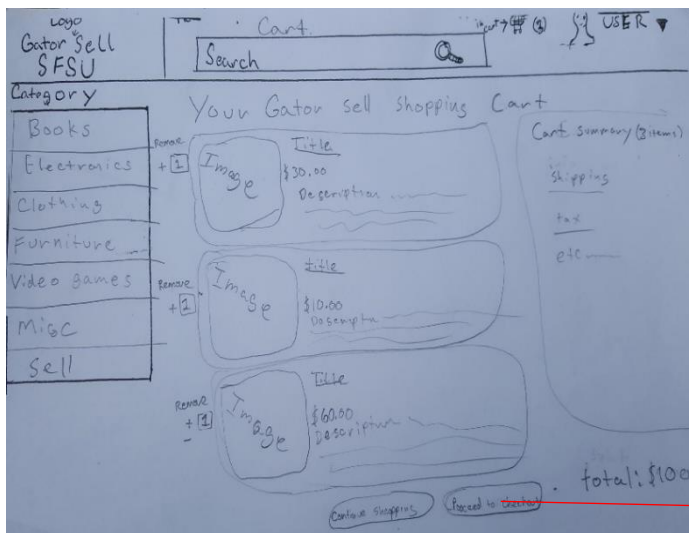 Logo
Gator Sell
SFSU
Cart
Search
(1)
USER
Category
Books
Electronics
Clothing
Furniture
Video games
Misc
Sell
Your Gator sell shopping Cart
Remove
+ 1
Image
Title
$30.00
Description
Remove
+ 1
Image
title
$10.00
Remove
+ 1
-
Image
Title
$60.00
Description
Cart summary (3 items)
shipping
tax
etc
total: $100
Continue shopping
Proceed to checkout